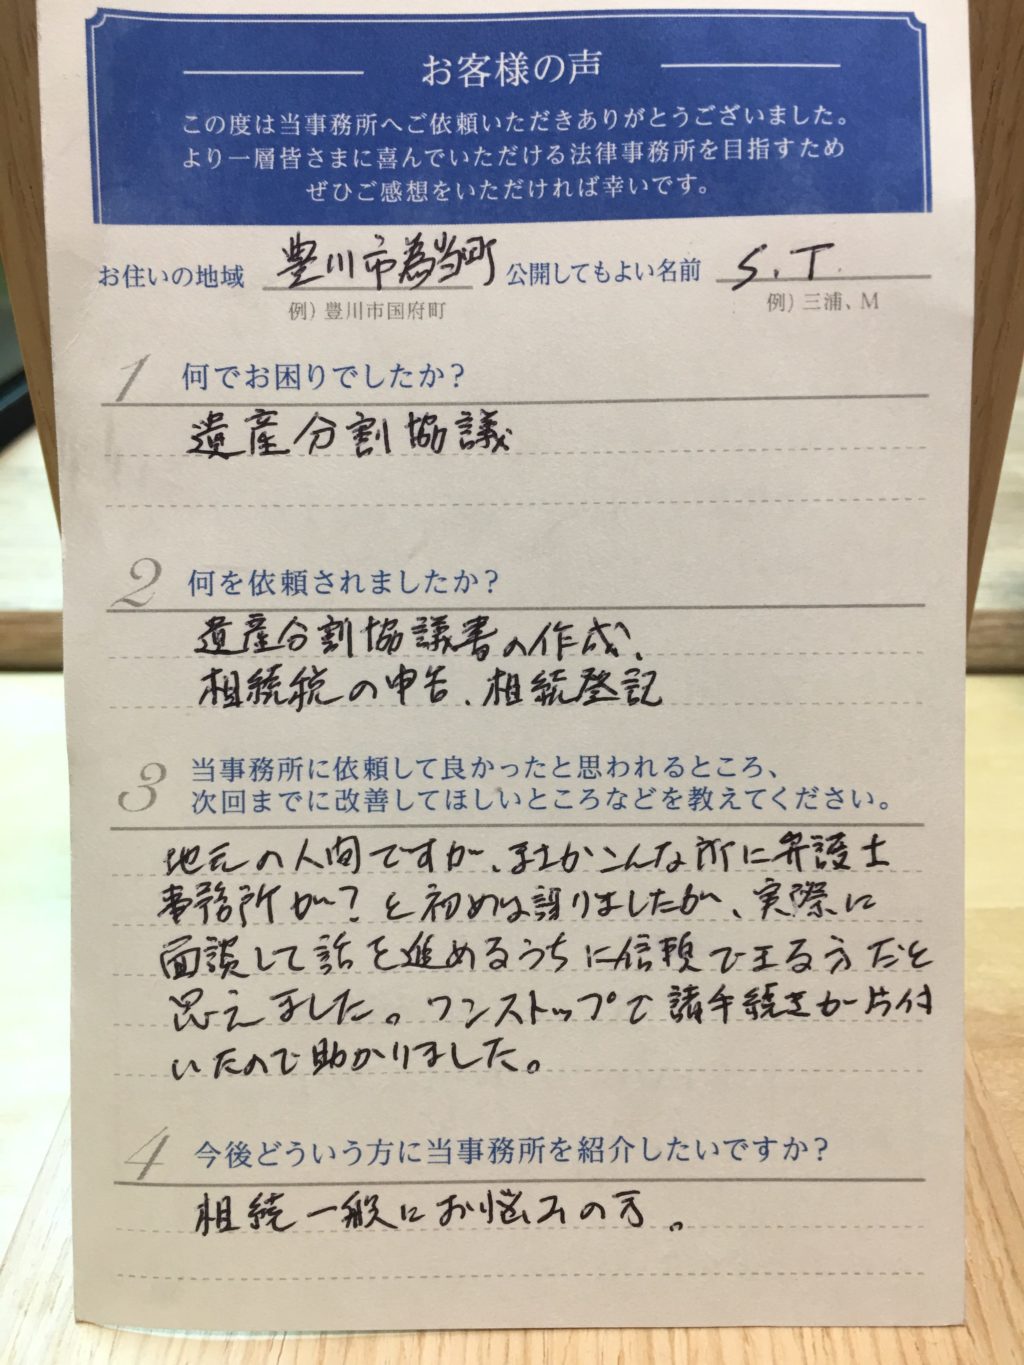 お客様の声
この度は当事務所へご依頼いただきありがとうございました。
より一層皆さまに喜んでいただける法律事務所を目指すため
ぜひご感想をいただければ幸いです。
お住いの地域 豊川市為当町 公開してもよい名前 S.T.
例）豊川市国府町 例）三浦、M
1 何でお困りでしたか？
遺産分割協議
2 何を依頼されましたか？
遺産分割協議書の作成、
相続税の申告、相続登記
3 当事務所に依頼して良かったと思われるところ、
次回までに改善してほしいところなどを教えてください。
地元の人間ですが、まさかこんな所に弁護士
事務所が？と初めは訝りましたが、実際に
面談して話を進めるうちに信頼できる方だと
思えました。ワンストップで諸手続きが片付
いたので助かりました。
4 今後どういう方に当事務所を紹介したいですか？
相続一般にお悩みの方。